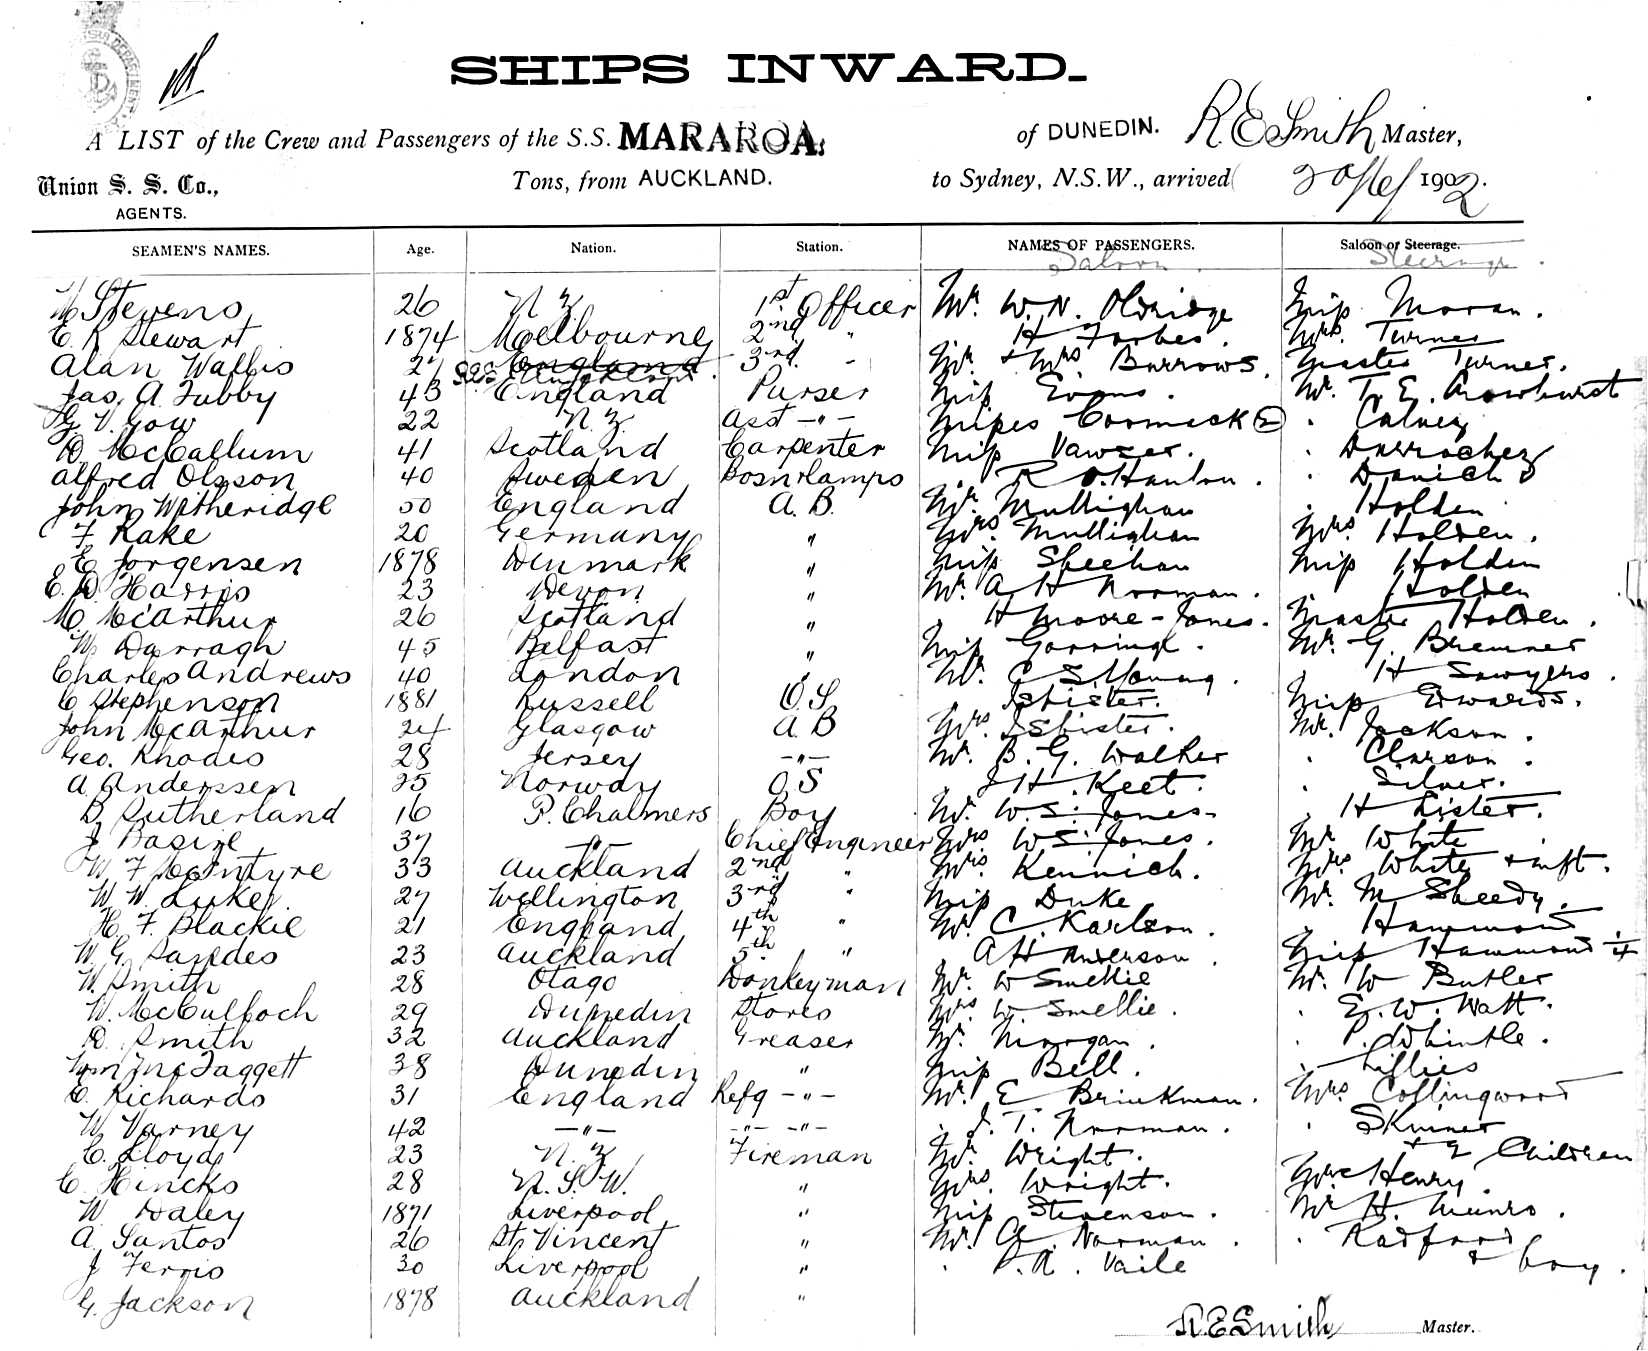 SHIPS INWARD.
A LIST of the Crew and Passengers of the S.S. MARAROA. of DUNEDIN. R. E. Smith Master,
Union S. S. Co., Tons, from AUCKLAND. to Sydney, N.S.W., arrived 20/6/1902.
AGENTS.
SEAMEN'S NAMES. Age. Nation. Station. NAMES OF PASSENGERS. Saloon or Steerage.
Saloon Steerage
Stevens 26 N.Z. 1st Officer Mr. W. N. Oldridge Miss Moran.
E. R Stewart 1874 Melbourne 2nd " H Forbes. Mrs. Turner
Alan Wallis 27 England 3rd - Mr. & Mrs Burrows. Master Turner.
Jas. A. Tubby 43 England Purser Miss Evans. Mr. T. E. Crowhurst
G. V. Gow 22 N.Z. Asst -"- Misses Cormack 2
D. McCallum 41 Scotland Carpenter Miss Vawser.
Alfred Olsson 40 Sweden Bosn & Lamps R O'Hanlon.
John Witheridge 50 England A. B. Mr. Mullighan Holden
F Rake 20 Germany " Mrs Mullighan Mrs Holden.
E Jorgensen 1878 Denmark " Miss Sheehan Miss Holden
E. D. Harris 23 Devon " Mr. A. H Norman. Holden
M. McArthur 26 Scotland " H Moore-Jones. Master Holden.
W. Darragh 45 Belfast " Miss Gorringe. Mr. G. Bremner
Charles Andrews 40 London " Mr. C. S. Young. H Sawyers.
C Stephenson 1881 Russell O.S Isbister. Miss Edwards.
John McArthur 24 Glasgow A B Mrs. Isbister. Mr. Jackson.
Geo. Rhodes 28 Jersey -"- Mr. B. G. Walker Clarson.
A Anderssen 25 Norway O S J H. Keet. Silver.
D. Sutherland 16 P. Chalmers Boy Mr. W. S. Jones. H Lister.
J 37 -"- Chief Engineer Mrs W S Jones. Mr White
W F McIntyre 33 Auckland 2nd " Mrs. Mrs. White & inft.
W. W. Luke 27 Wellington 3rd " Miss Duke Mr. M Sheedy.
H. F. Blackie 21 England 4th " Mr. C. Karlson. Hammond
W. G. 23 Auckland 5th " A H Anderson. Miss Hammond
W. Smith 28 Otago Donkeyman Mr. W Smellie Mr. W Butler
W. McCulloch 29 Dunedin Stores Mrs. W. Smellie. E. W. Watt.
D. Smith 32 Auckland Greaser Mr. Morgan. P. Whintle.
Wm McTaggett 38 Dunedin " Miss Bell. Lillies
E. Richards 31 England Refg -"- Mr. E Brinkman. Mrs Collingwood
W Varney 42 -"- -"- -"- J. T. Norman. Skinner
C. Lloyd 23 N. Z Fireman Mr. Wright. & 2 Children
C. Hincks 28 N. S. W. " Mrs. Wright. Henry.
W Daley 1871 Liverpool " Miss Stevenson. Mr H. Munro.
A. Santos 26 St. Vincent " Mr. G. Norman. Radford
J Ferris 30 Liverpool " P. A. Vaile & boy.
G. Jackson 1878 Auckland "
R. E. Smith Master.